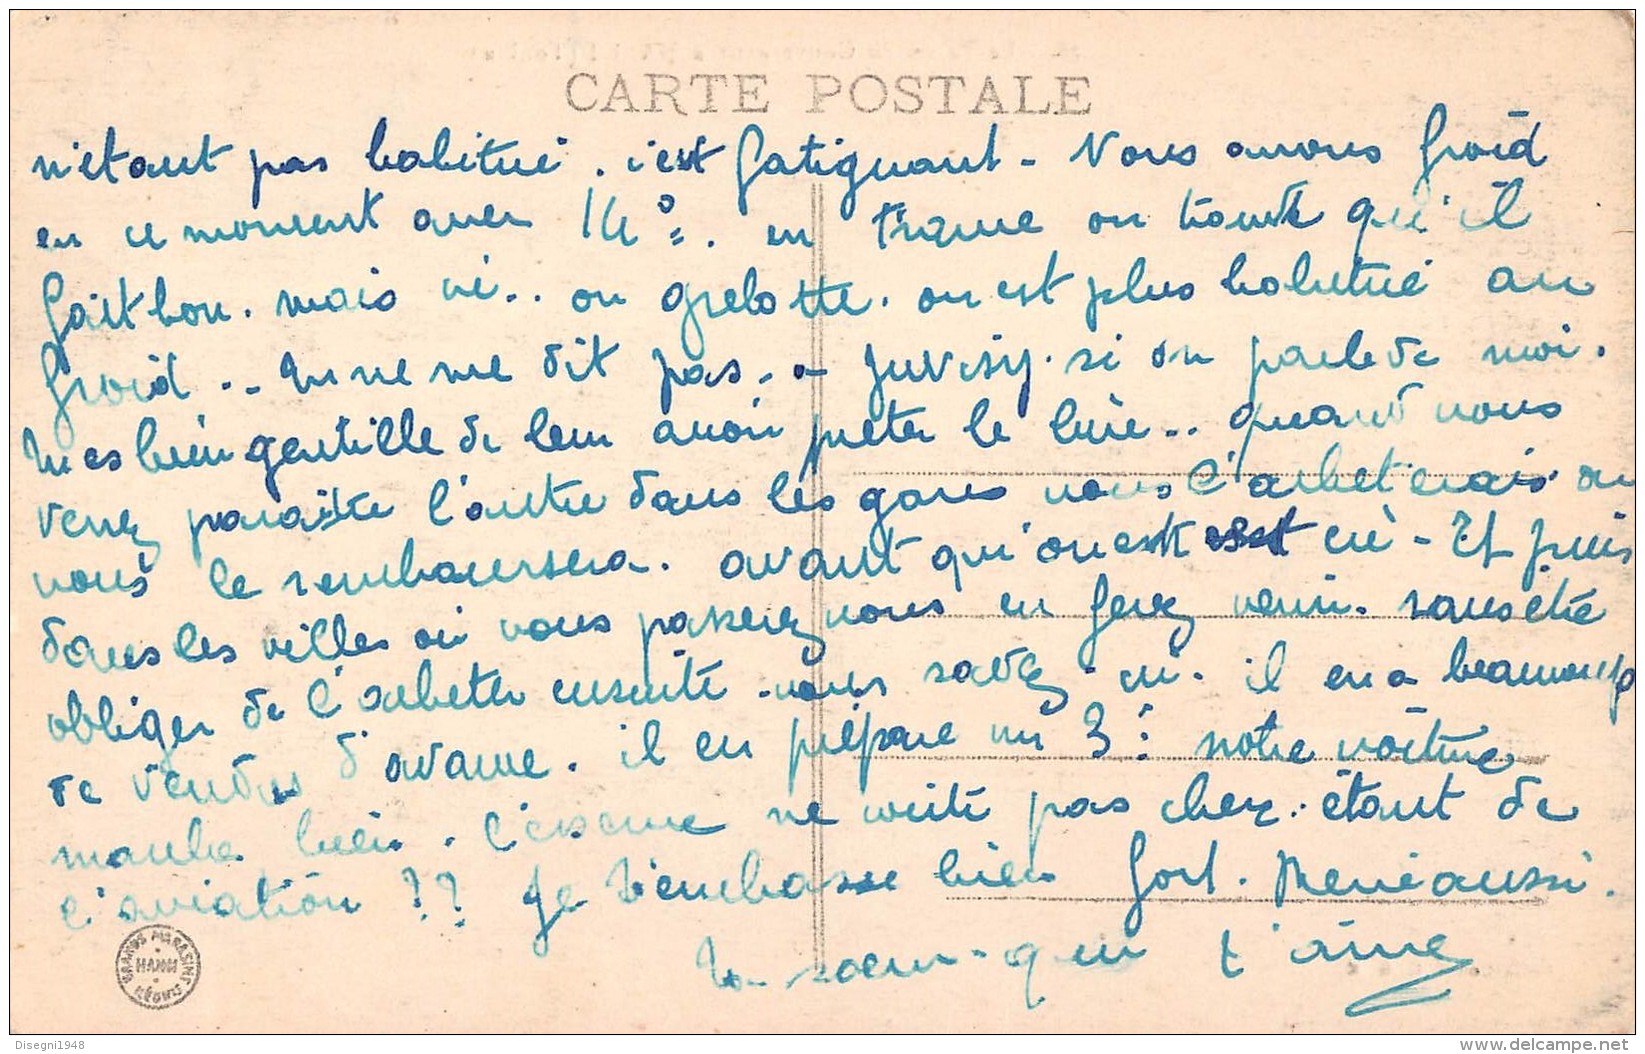 CARTE POSTALE
n'étant pas habitué. c'est fatiguant - Nous avons froid
en ce moment avec 14°=. en France on trouve qu'il
fait bon. mais ici.. on grelotte. on est plus habitué au
froid .. Tu ne me dit pas. à Juvisy. si on parle de moi.
Tu es bien gentille de leur avoir prêter le livre.. quand vous
verrez paraître l'autre dans les gares vous l'acheterais on
vous le remboursera. avant qu'on est est ici - Et puis
dans les villes où vous passerez vous en ferez venir. sans être
obliger de l'acheter ensuite. vous savez. ici. il en a beaucoup
de vendus d'avance. il en prépare un 3: notre voiture
marche bien. l'essence ne coûte pas cher. étant de
l'aviation ?? Je t'embrasse bien fort. René aussi.
Ta soeur. qui t'aime
GRANDS MAGASINS RÉUNIS
HANOI
Disegni1948
www.delcampe.net